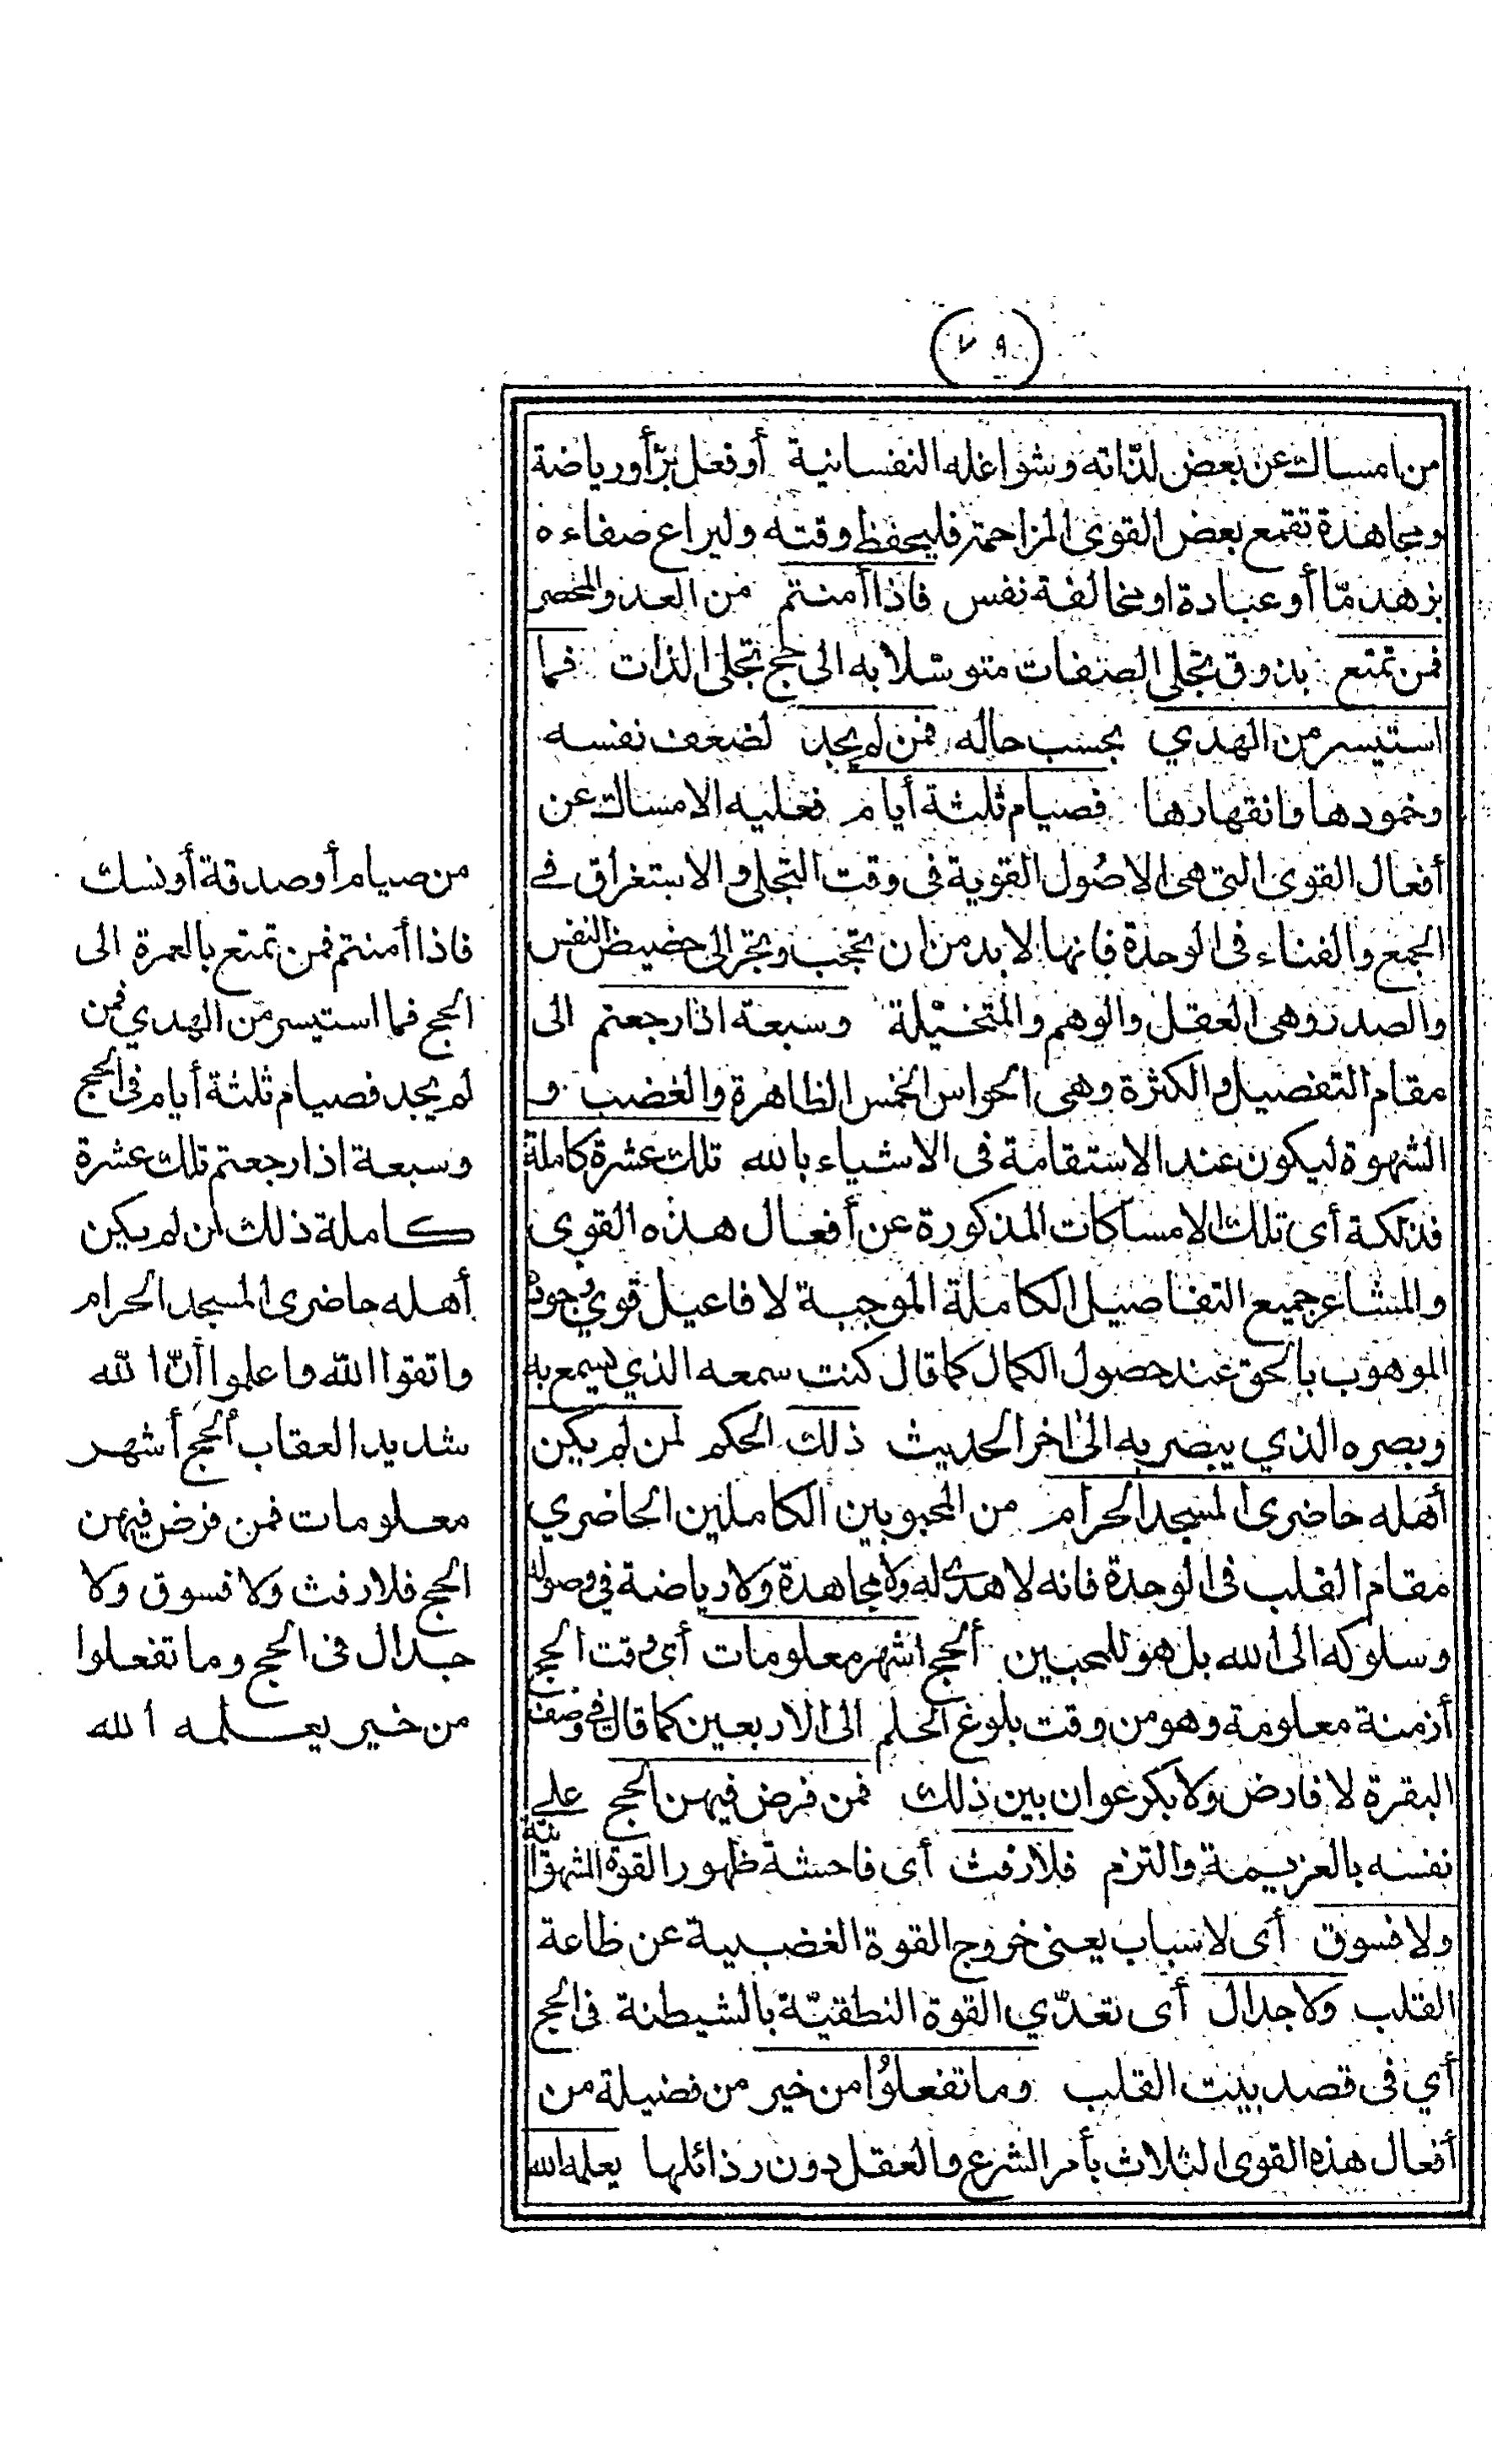 ٧٩
من امساك عن بعض لذّاته وشواغله النفسانية أو فعل برّ أو رياضة
ومجاهدة تقمع بعض القوى المزاحمة فليحفظ وقته وليراع صفاءه
بزهد مّا أو عبادة او مخالفة نفس فاذا أمنتم من العدو المحصر
فمن تمتع بذوق تجلى الصفات متوسّلا به الى حج تجلى الذات فما
استيسر من الهدي بحسب حاله فمن لم يجد لضعف نفسه
وخمودها وانقهارها فصيام ثلثة أيام فعليه الامساك عن
أفعال القوى التى هى الاصُول القوية فى وقت التجلى والاستغراق فے
الجمع والفناء فى الوحدة فانها لا بد من ان تحجب وتجر الى حضيض النفس
والصدر وهى العقل والوهم والمتخيّلة وسبعة اذا رجعتم الى
مقام التفصيل والكثرة وهى الحواس الخمس الظاهرة والغضب و
الشهوة ليكون عند الاستقامة فى الاشياء بالله تلك عشرة كاملة
فذلكة أى تلك الامساكات المذكورة عن أفعال هذه القوى
والمشاعر جميع التفاصيل الكاملة الموجبة لافاعيل قوى وجوده
الموهوب بالحق عند حصول الكمال كما قال كنت سمعه الذي يسمع به
وبصره الذي يبصر به الى اخر الحديث ذلك الحكم لمن لم يكن
أهله حاضرى المسجد الحرام من المحبوبين الكاملين الحاضري
مقام القلب فى الوحدة فانه لا هدى له ولا مجاهدة ولا رياضة في وصوله
وسلوكه الى الله بل هو للمحبين ألحج اشهر معلومات أى وقت الحج
أزمنة معلومة وهو من وقت بلوغ الحلم الى الاربعين كما قال فى وصف
البقرة لا فارض ولا بكر عوان بين ذلك فمن فرض فيهن الحج علے
نفسه بالعزيمة والتزم فلا رفث أى فاحشة ظهور القوة الشهوانية
ولا فسوق أى لا سباب يعنى خروج القوة الغضبية عن طاعة
القلب ولا جدال أى تعدّي القوة النطقيّة بالشيطنة فى الحج
أي فى قصد بيت القلب وما تفعلوُا من خير من فضيلة من
أفعال هذه القوى الثلاث بأمر الشرع والعقل دون رذائلها يعلمه الله
من صيام أو صدقة أو نسك
فاذا أمنتم فمن تمتع بالعمرة الى
الحج فما استيسر من الهدي فمن
لم يجد فصيام ثلثة أيام فى الحج
وسبعة اذا رجعتم تلك عشرة
كاملة ذلك لمن لم يكن
أهله حاضرى المسجد الحرام
واتقوا الله واعلموا أنّ الله
شديد العقاب ألحج أشهر
معلومات فمن فرض فيهن
الحج فلا رفث ولا فسوق ولا
جدال فى الحج وما تفعلوا
من خير يعلمه الله